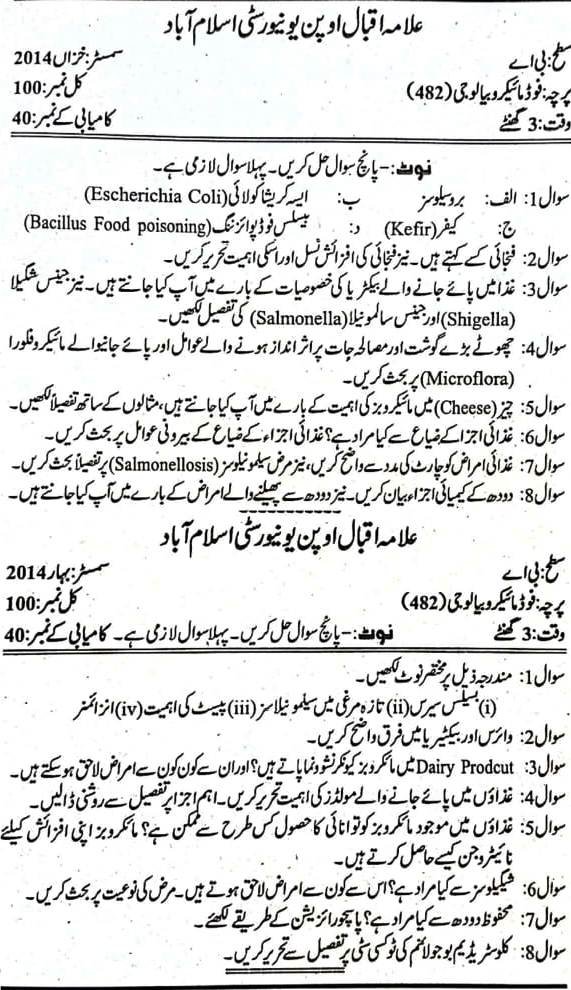 علامہ اقبال اوپن یونیورسٹی اسلام آباد
سطح: بی اے سمسٹر: خزاں 2014
پرچہ: فوڈ مائیکرو بیالوجی (482) کل نمبر: 100
وقت: 3 گھنٹے کامیابی کے نمبر: 40
نوٹ:- پانچ سوال حل کریں۔ پہلا سوال لازمی ہے۔
سوال 1: الف: بروسیلوسز ب: ایسہ کریشیا کولائی (Escherichia Coli)
ج: کیفر (Kefir) د: بیسلس فوڈ پوائزننگ (Bacillus Food poisoning)
سوال 2: فنجائی کسے کہتے ہیں۔ نیز فنجائی کی افزائش نسل اور اسکی اہمیت تحریر کریں۔
سوال 3: غذا میں پائے جانے والے بیکٹریا کی خصوصیات کے بارے میں آپ کیا جانتے ہیں۔ نیز جینس شگیلا
(Shigella) اور جینس سالمونیلا (Salmonella) کی تفصیل لکھیں۔
سوال 4: چھوٹے بڑے گوشت اور مصالحہ جات پر اثر انداز ہونے والے عوامل اور پائے جانیوالے مائیکروفلورا
(Microflora) پر بحث کریں۔
سوال 5: چیز (Cheese) میں مائیکروبز کی اہمیت کے بارے میں آپ کیا جانتے ہیں، مثالوں کے ساتھ تفصیلاً لکھیں۔
سوال 6: غذائی اجزاء کے ضیاع سے کیا مراد ہے؟ غذائی اجزاء کے ضیاع کے بیرونی عوامل پر بحث کریں۔
سوال 7: غذائی امراض کو چارٹ کی مدد سے واضح کریں، نیز مرض سیلمونیلوسز (Salmonellosis) پر تفصیلاً بحث کریں۔
سوال 8: دودھ کے کیمیائی اجزاء بیان کریں۔ نیز دودھ سے پھیلنے والے امراض کے بارے میں آپ کیا جانتے ہیں۔
علامہ اقبال اوپن یونیورسٹی اسلام آباد
سطح: بی اے سمسٹر: بہار 2014
پرچہ: فوڈ مائیکرو بیالوجی (482) کل نمبر: 100
وقت: 3 گھنٹے نوٹ:- پانچ سوال حل کریں۔ پہلا سوال لازمی ہے۔ کامیابی کے نمبر: 40
سوال 1: مندرجہ ذیل پر مختصر نوٹ لکھیں۔
(i) بسیلس سیرس (ii) تازہ مرغی میں سیلمونیلاسز (iii) پیسٹ کی اہمیت (iv) انزائمنر
سوال 2: وائرس اور بیکٹیریا میں فرق واضح کریں۔
سوال 3: Dairy Prodcut میں مائکروبز کیونکر نشوونما پاتے ہیں؟ اور ان سے کون کون سے امراض لاحق ہو سکتے ہیں۔
سوال 4: غذاؤں میں پائے جانے والے مولڈز کی اہمیت تحریر کریں۔ اہم اجزا پر تفصیل سے روشنی ڈالیں۔
سوال 5: غذاؤں میں موجود مائکروبز کو توانائی کا حصول کس طرح سے ممکن ہے؟ مائکروبز اپنی افزائش کیلئے
نائیٹروجن کیسے حاصل کرتے ہیں۔
سوال 6: شیگیلوسز سے کیا مراد ہے؟ اس سے کون سے امراض لاحق ہوتے ہیں۔ مرض کی نوعیت پر بحث کریں۔
سوال 7: محفوظ دودھ سے کیا مراد ہے؟ پاسچورائزیشن کے طریقے لکھئے۔
سوال 8: کلوسٹریڈیم بوجولائنم کی ٹوکسی سٹی پر تفصیل سے تحریر کریں۔